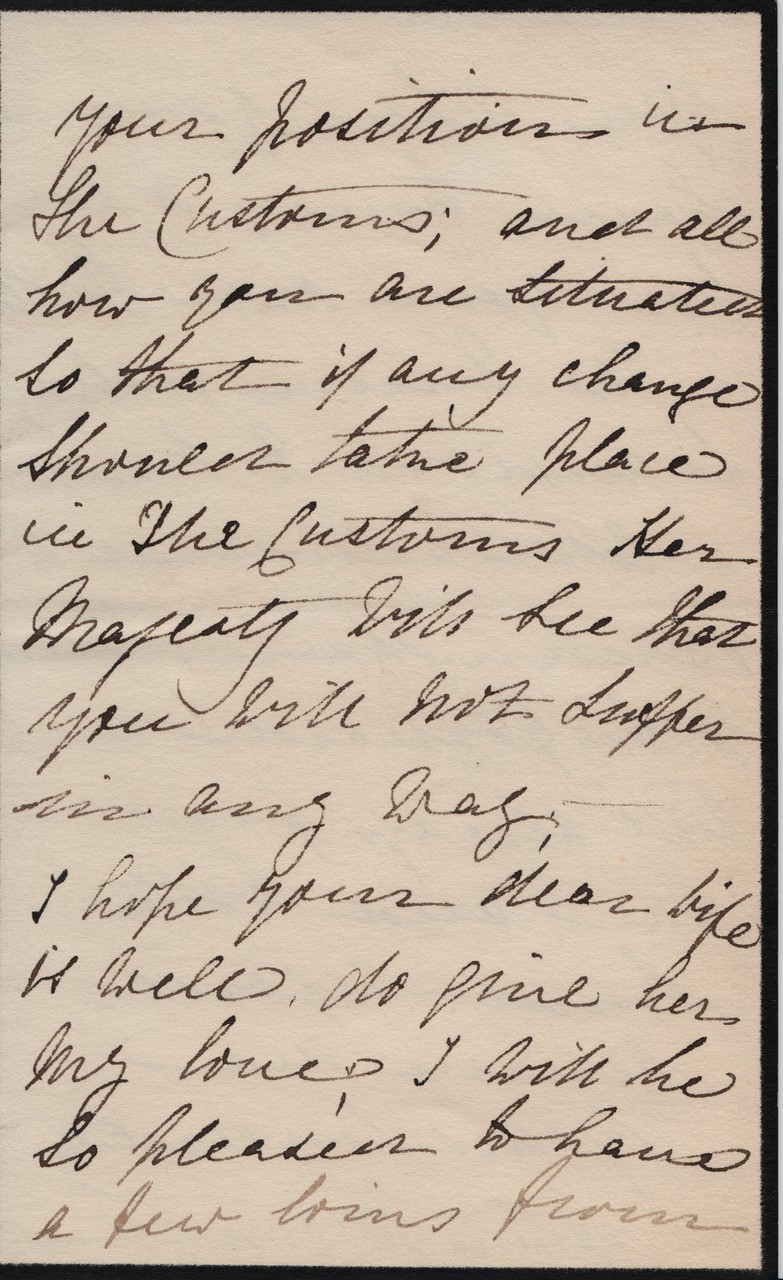 your position in
the Customs; and all
how you are situated
so that if any change
should take place
in The Customs Her
Majesty Will see that
you will not suffer
in any Way;
I hope your dear wife
is well. do give her
My love, I will be
so pleased to have
a few lines from